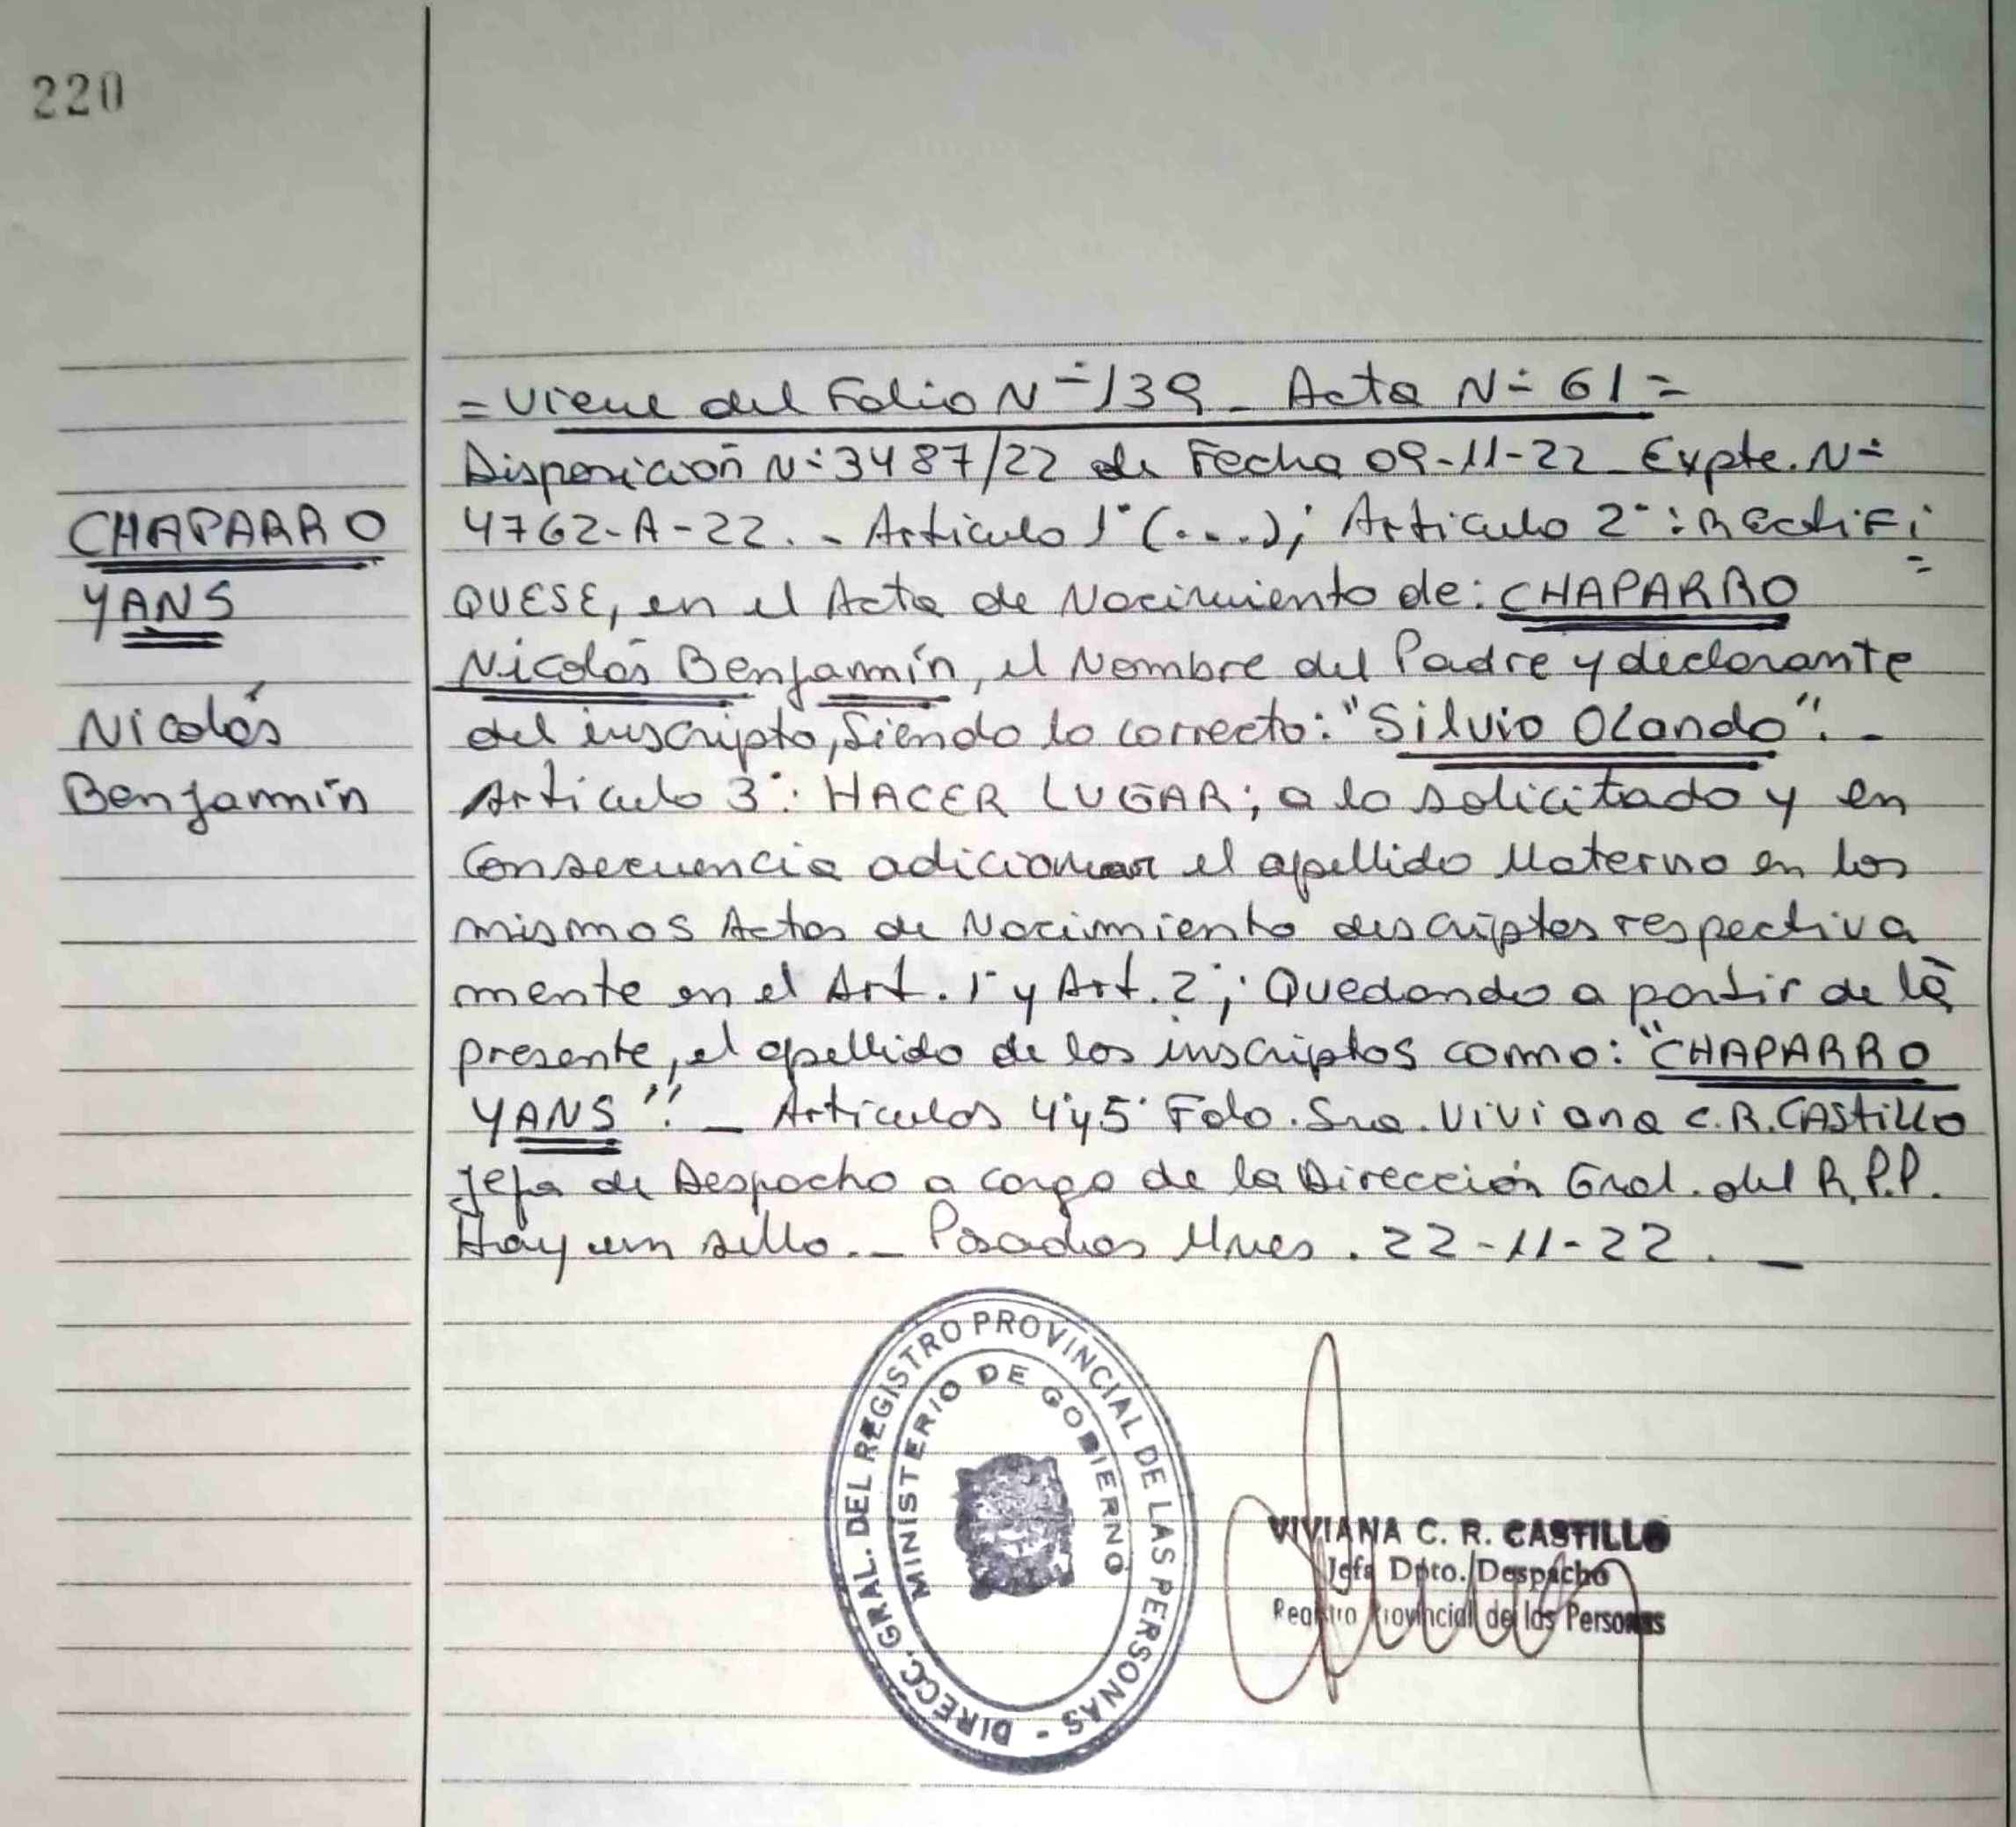 220
CHAPARRO
YANS
Nicolás
Benjamín
= Viene del Folio Nº 139 - Acta Nº 61 =
Disposición Nº 3487/22 de Fecha 09-11-22 Expte. Nº
4762-A-22. - Artículo 1º (....); Artículo 2º: RECtiFi
QUESE, en el Acta de Nacimiento de: CHAPARRO
Nicolás Benjamín, el Nombre del Padre y declarante
del inscripto, Siendo lo correcto: "Silvio OLando". -
Artículo 3º: HACER LUGAR; a lo solicitado y en
Consecuencia adicionar el apellido Materno en los
mismos Actas de Nacimiento descriptos respectiva
mente en el Art. 1º y Art. 2º; Quedando a partir de la
presente, el apellido de los inscriptos como: "CHAPARRO
YANS". - Artículos 4º y 5º Fdo. Sra. Viviana C.R. CAStiLLo
Jefa de Despacho a cargo de la Dirección Gral. del R.P.P.
Hay un sello. - Posadas Mnes. 22-11-22. -
DIRECC. GRAL. DEL REGISTRO PROVINCIAL DE LAS PERSONAS -
MINISTERIO DE GOBIERNO
VIVIANA C. R. CASTILLO
Jefa Dpto. Despacho
Registro Provincial de las Personas